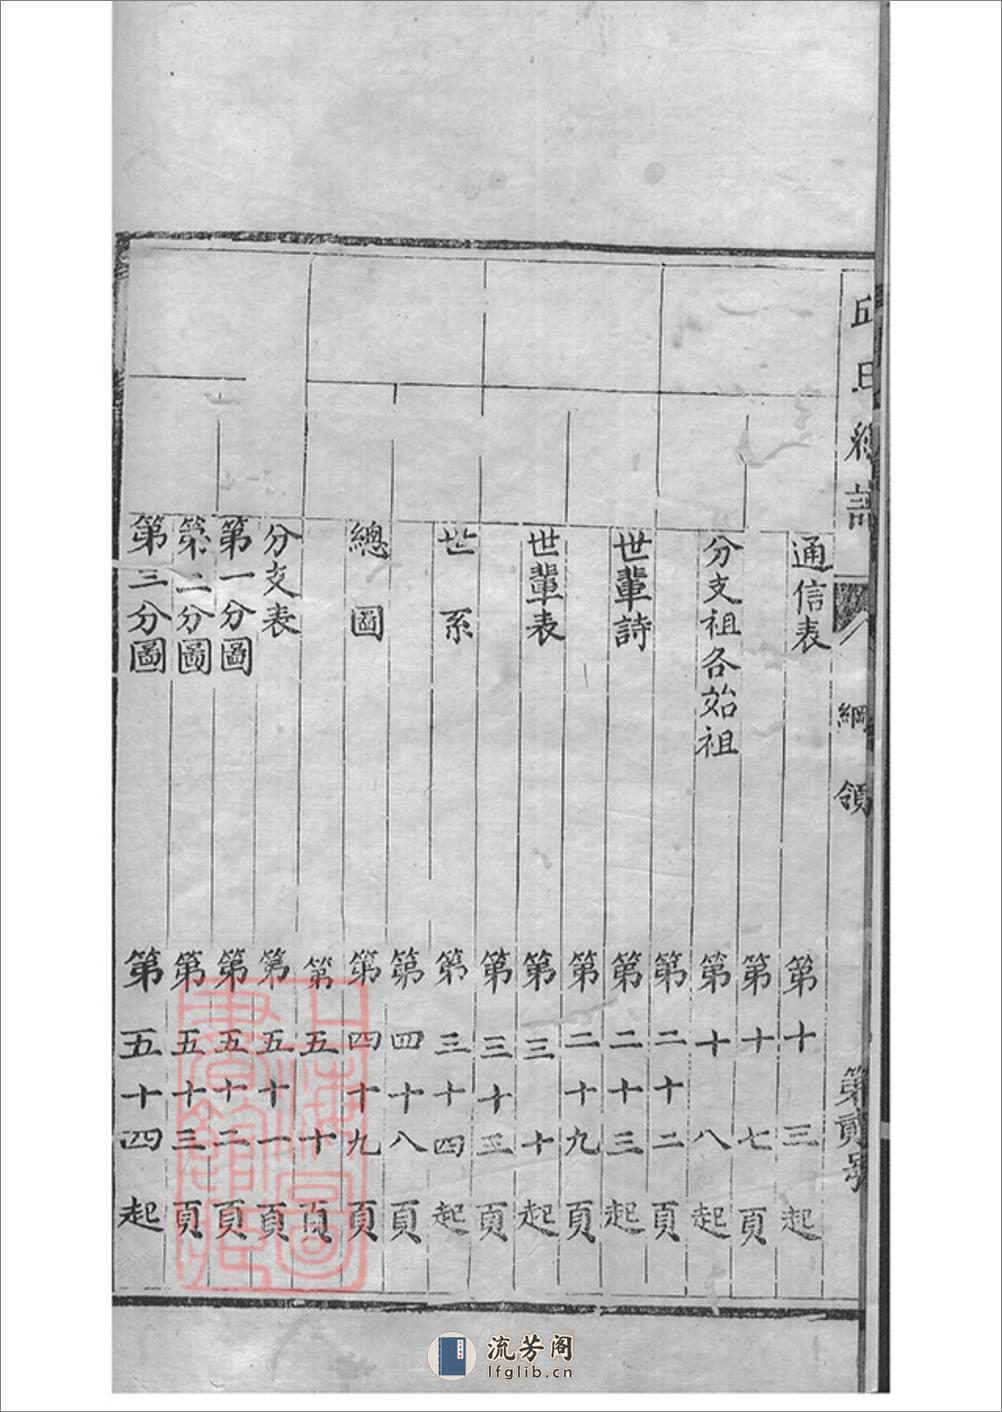 邱氏總譜
綱領
第貳号
通信表 第十三起
第十七頁
分支祖各始祖 第十八起
第二十二頁
世輩詩 第二十三起
第二十九頁
世輩表 第三十起
第三十三頁
世系 第三十四起
第四十八頁
總圖 第四十九頁
第五十頁
分支表 第五十一頁
第一分圖 第五十二頁
第二分圖 第五十三頁
第三分圖 第五十四起
上海圖書館藏
流芳阁
lfglib.cn